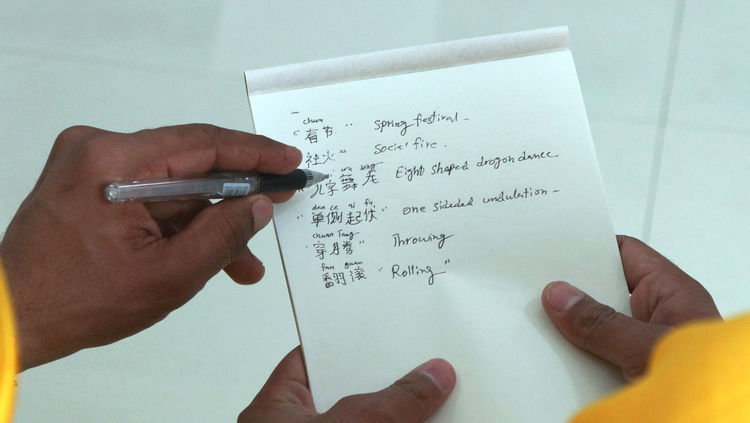 chun
"春节" Spring festival -
社火" Social fire.
wu long
八字舞龙 Eight shaped dragon dance
dan ce qi fu
"单侧起伏" one sided undulation -
chuan Tang
"穿腾" Throwing
fan guan
翻滚 "Rolling"